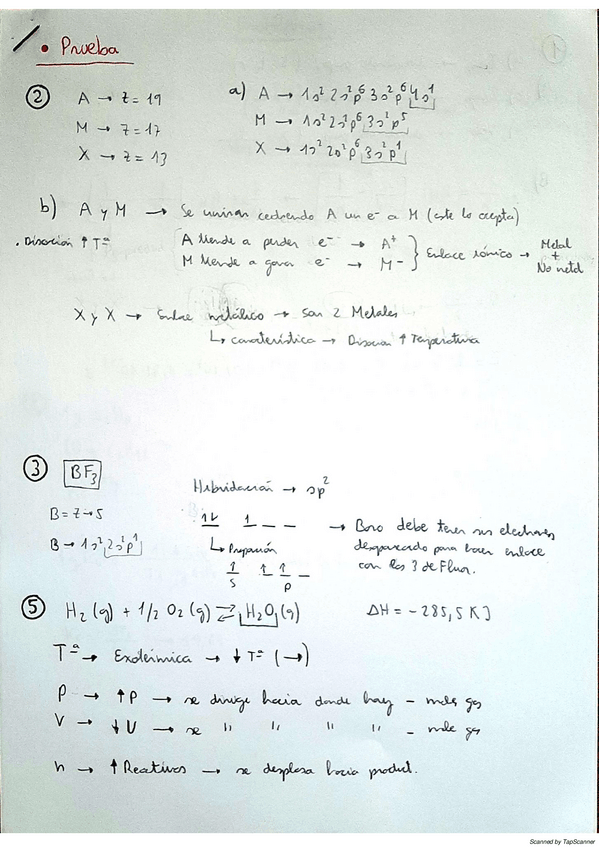 • Prueba
② A → Z = 19 a) A → 1s² 2s² p⁶ 3s² p⁶ 4s¹
M → Z = 17 M → 1s² 2s² p⁶ 3s² p⁵
X → Z = 13 X → 1s² 2s² p⁶ 3s² p¹
b) A y M → Se unirán cediendo A un e⁻ a M (este lo acepta)
A tiende a perder e⁻ → A⁺
M tiende a ganar e⁻ → M⁻ } Enlace iónico → Metal + No metal
X y X → Enlace metálico → Son 2 Metales
↳ característica → ↑ Temperatura
③ BF₃
Hibridación → sp²
B = Z → 5
B → 1s² 2s² p¹
→ Boro debe tener sus electrones
desapareado para hacer enlace
con los 3 de Fluor.
↳ Promoción
s p
⑤ H₂ (g) + 1/2 O₂ (g) ⇄ H₂O (g) ΔH = - 285,5 KJ
Tª → Exotérmica → ↓ Tª (→)
P → ↑ P → se dirige hacia donde hay - moles gas
V → ↓ V → se " " " " - moles gas
n → ↑ Reactivos → se desplaza hacia product.
Scanned by TapScanner